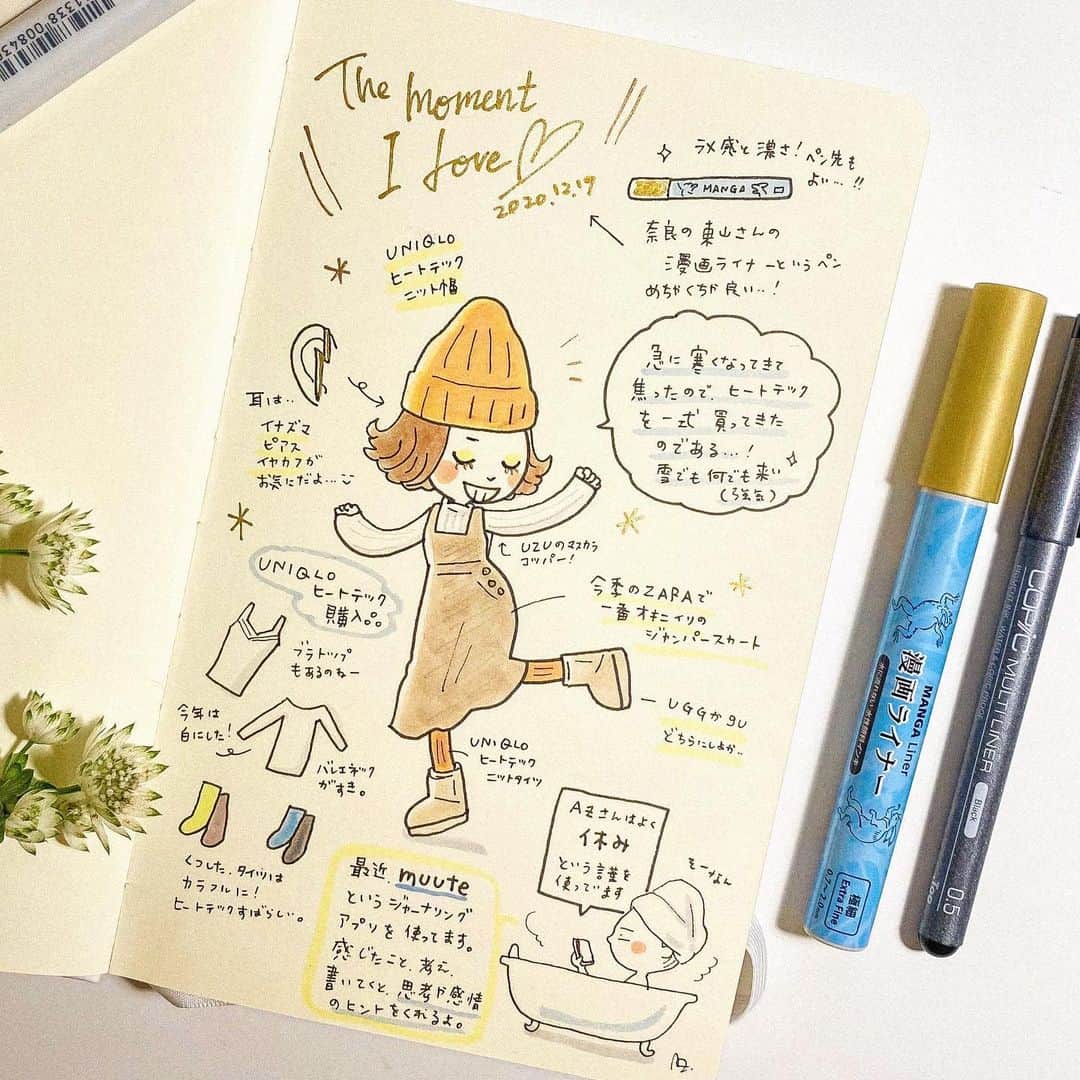 The moment
I love
2020.12.19
ラメ感と濃さ!ペン先も
よい…!!
MANGA
奈良の東山さんの
漫画ライナーというペン
めちゃくちゃ良い..!
UNIQLO
ヒートテック
ニット帽
耳は..
イナズマ
ピアス
イヤカフが
お気にだよ…
急に寒くなってきて
焦ったので、ヒートテック
を一式買ってきた
のである…!
雪でも何でも来い
(強気)
UZUのマスカラ
コッパー!
UNIQLO
ヒートテック
購入。。
今季のZARAで
一番オキニイリの
ジャンパースカート
ブラトップ
もあるのねー
今年は
白にした!
バレエネック
がすき。
UGGかgu
どちらにしよか..
UNIQLO
ヒートテック
ニットタイツ
くつした、タイツは
カラフルに!
ヒートテックすばらしい。
最近、muute
というジャーナリング
アプリを使ってます。
感じたこと、考え、
書いてくと、思考や感情
のヒントをくれるよ。
という謹を
使ってます
休み
MANGA Liner
漫画ライナー
極細
Extra Fine
0.7~2.0mm
COPIC MULTILINER
Black
0.5
Too